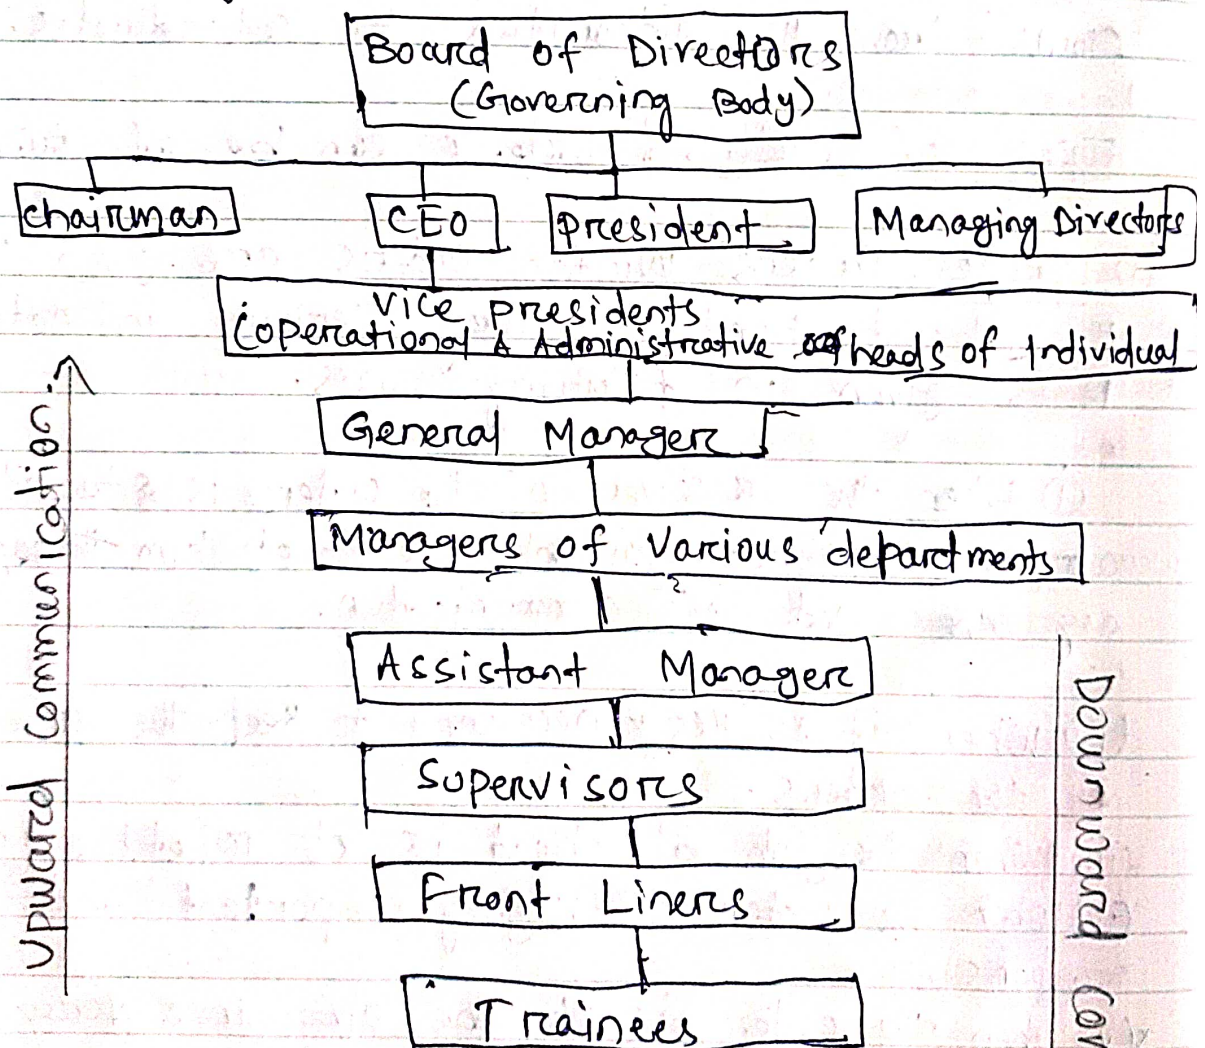 Board of Directors
(Governing Body)
Chairman
CEO
President
Managing Directors
Vice presidents
(operational & Administrative heads of Individual
General Manager
Managers of Various departments
Assistant Manager
Supervisors
Front Liners
Trainees
Upward Communication
Downward Com